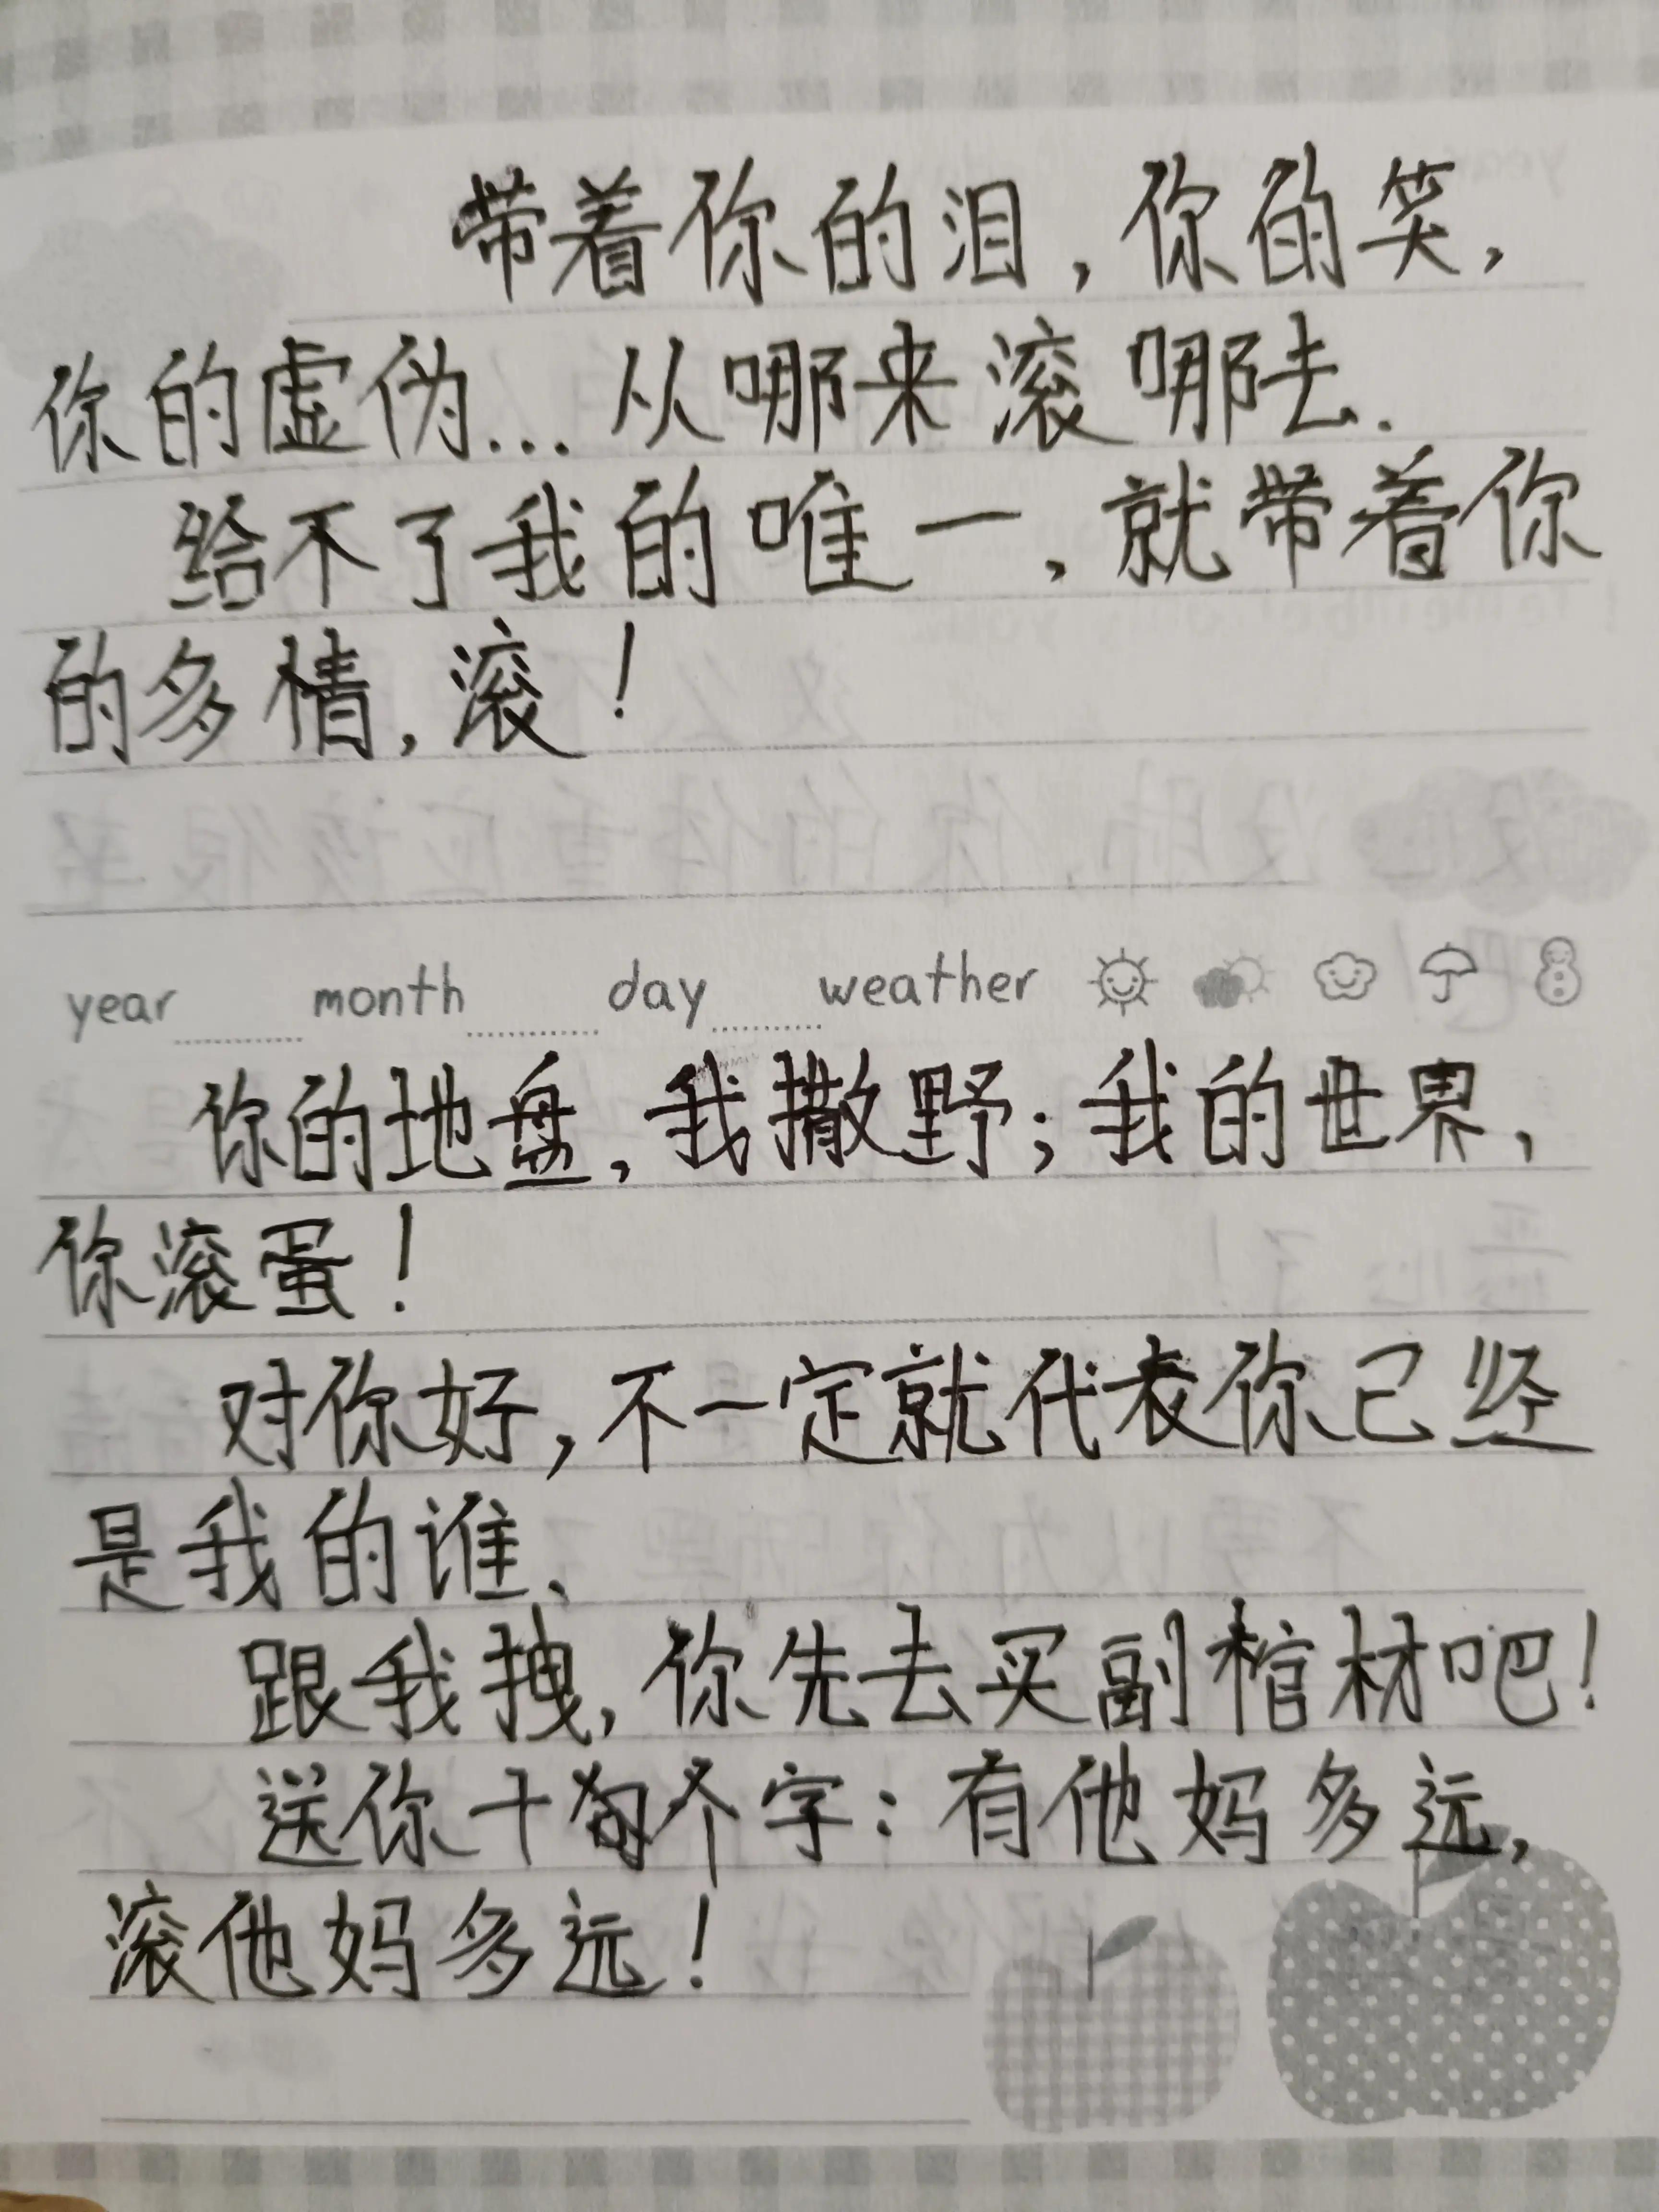 带着你的泪，你的笑，
你的虚伪...从哪来滚哪去.
给不了我的唯一，就带着你
的多情，滚！
year month day weather
你的地盘，我撒野；我的世界，
你滚蛋！
对你好，不一定就代表你已经
是我的谁、
跟我拽，你先去买副棺材吧！
送你十个字：有他妈多远，
滚他妈多远！